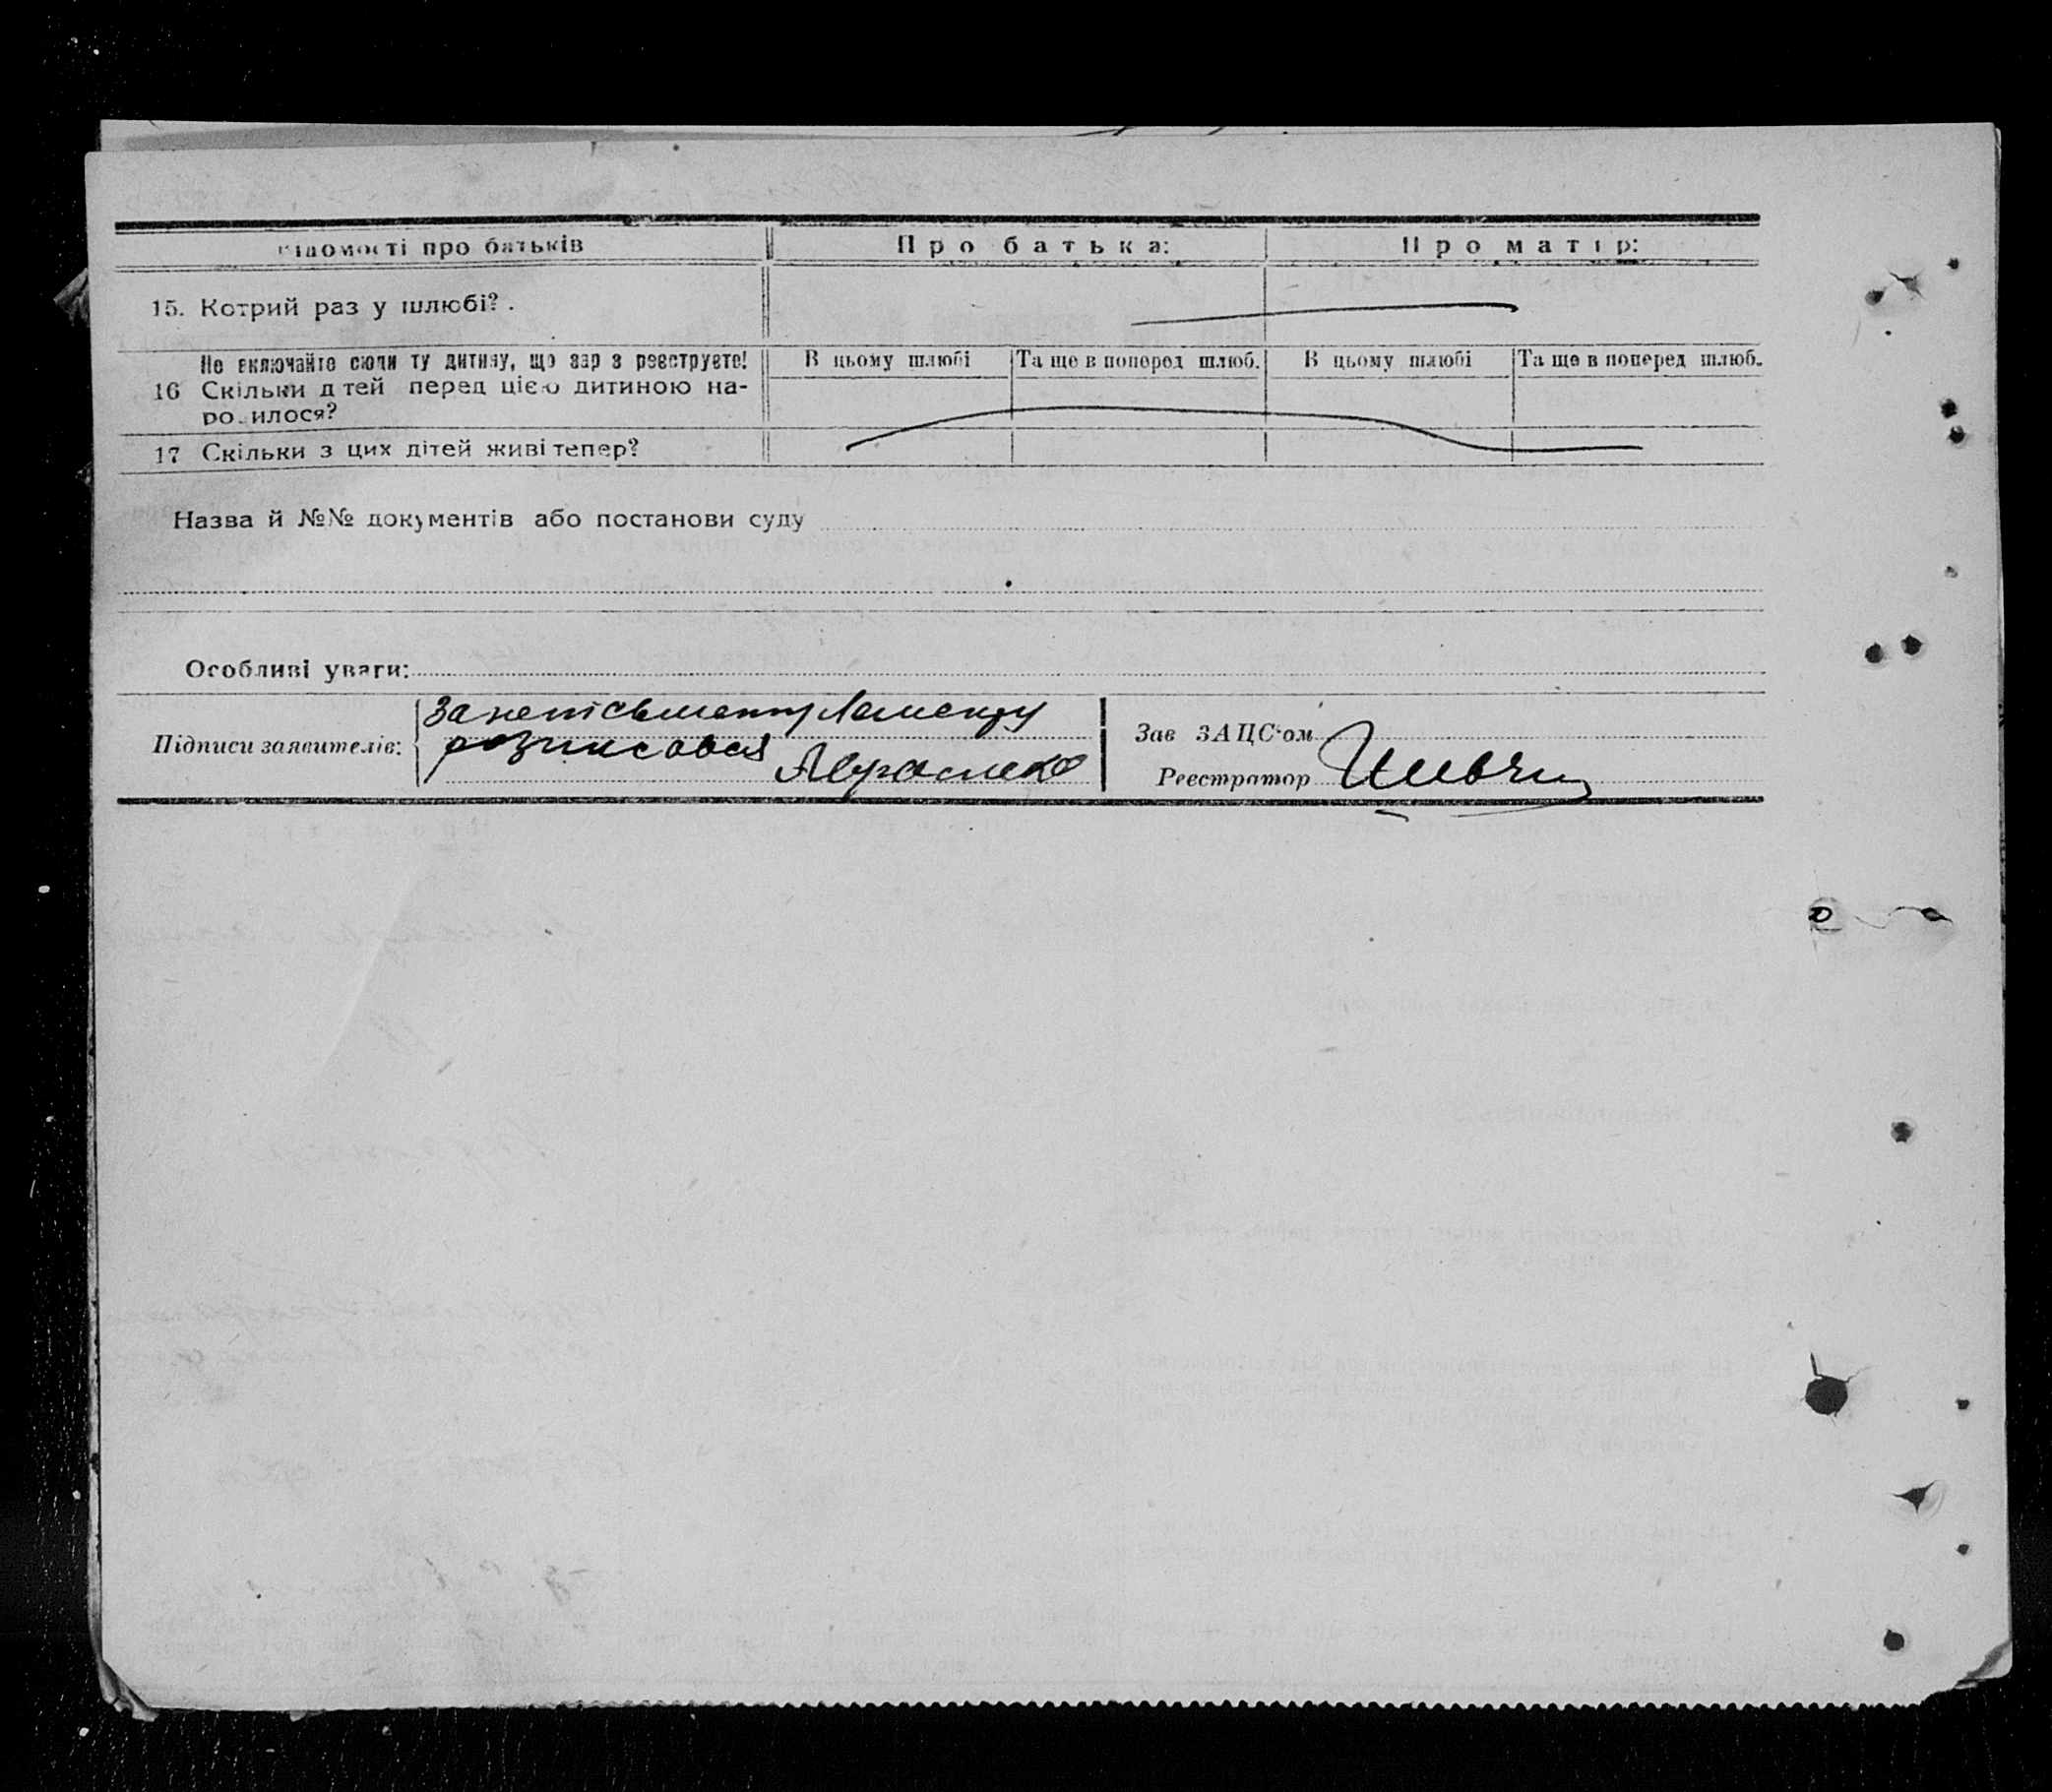 відомості про батьків Про батька: Про матір:
15. Котрий раз у шлюбі? .
Не включайте сюди ту дитину, що зараз реєструєте! В цьому шлюбі Та ще в поперед шлюб. В цьому шлюбі Та ще в поперед шлюб.
16 Скільки дітей перед цією дитиною на-
родилося?
17 Скільки з цих дітей живі тепер?
Назва й №№ документів або постанови суду
Особливі уваги:
За неписьменну
Підписи заявителів: розписався
Зав ЗАЦС'ом
Реєстратор